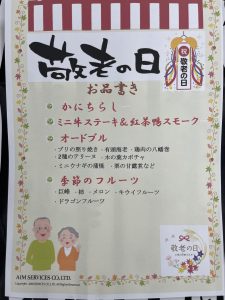 敬老の日
祝
敬老の日
お品書き
かにちらし
ミニ牛ステーキ&紅茶鴨スモーク
オードブル
・ブリの照り焼き ・有頭海老 ・鶏肉の八幡巻
・2種のテリーヌ ・木の葉カボチャ
・ミニウナギの蒲焼 ・栗の甘露煮など
季節のフルーツ
・巨峰 ・柿 ・メロン ・キウイフルーツ
・ドラゴンフルーツ
敬老の日
AIM SERVICES CO.,LTD.